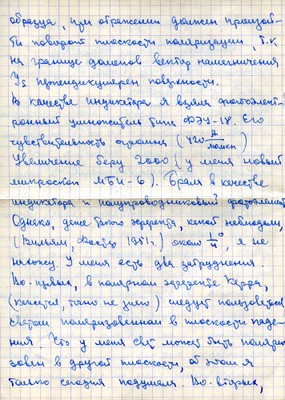 образца, при отражении должен произой-
ти поворот плоскости поляризации, т.к.
на границе доменов вектор намагничения
Is перпендикулярен поверхности.
В качестве индикатора я взял фотоэлект-
ронный умножитель типа ФЭУ-18. Его
чувствительность огромна (420 А/люмен)
Увеличение беру 2000 (у меня новый
микроскоп МБИ-6). Брал в качестве
индикатора и полупроводниковый фотоэлемент
Однако, даже такого эффекта, какой наблюдали,
(Вильям, Фостер 1951г.) около 1/4°, я не
нахожу У меня есть два затруднения
Во-первых, в полярном эффекте Керра,
(кажется, точно не знаю) следует пользоваться
светом поляризованном в плоскости паде-
ния Что у меня свет может быть поляри-
зован в другой плоскости, об этом я
только сегодня подумал. Во-вторых,